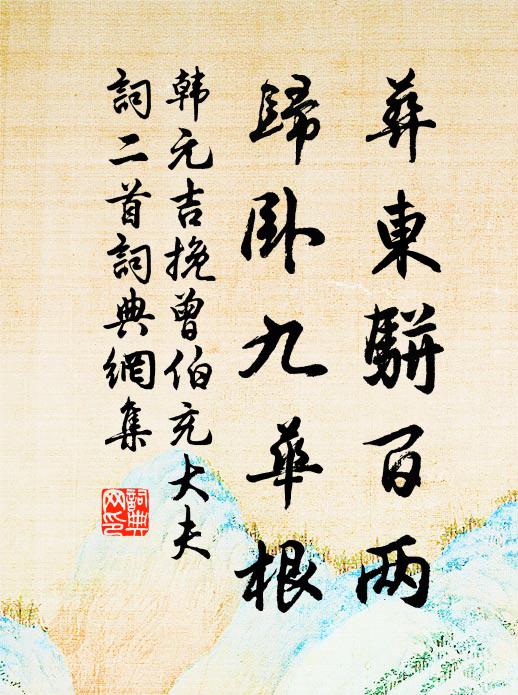 葬東騈百两
歸卧九華根
韓元吉挽曾伯充大夫
詞二首詞典網集
詞典网印